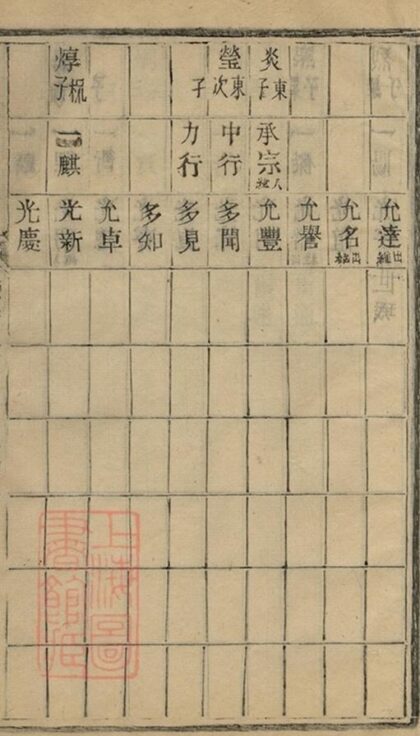 允達出繼
允名出
允譽
炎東子
承宗入
允豐
瑩東次子
中行
多聞
力行
多見
多知
允卓
焞子
一麒
光新
光慶
上海圖
書館藏